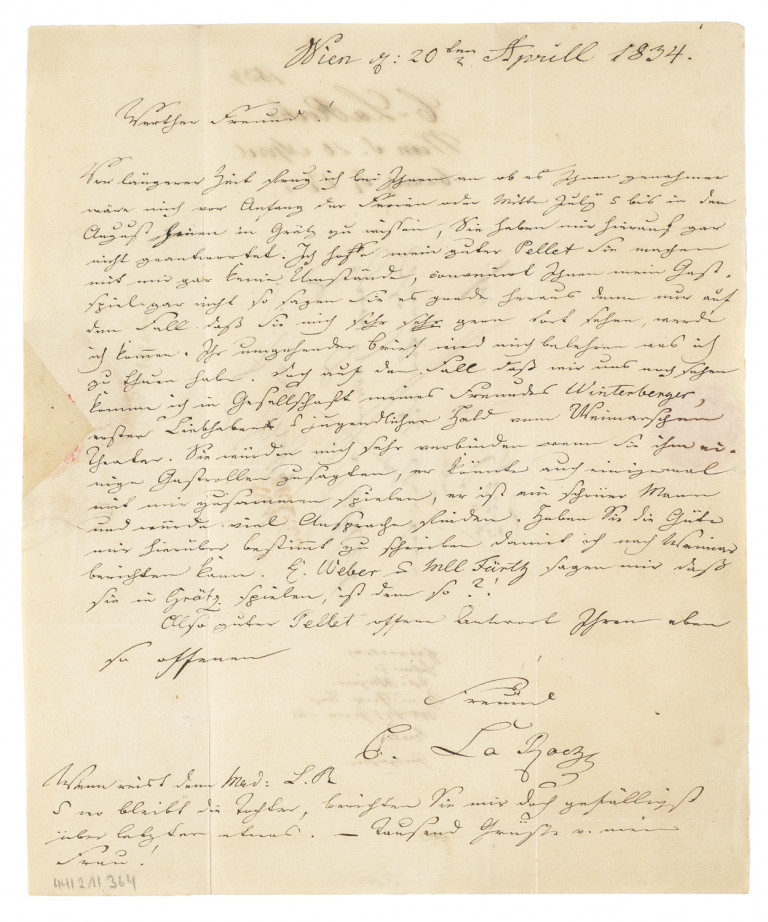 Wien d: 20ten Aprill 1834.
Werther Freund!
Vor längerer Zeit frug ich bei Ihnen an ob es Ihnen genehmer
wäre mich vor Anfang der Ferien oder Mitte July & bis in den
August in Grätz zu wissen, Sie haben mir hierauf gar
nicht geantwortet. Ich hoffe mein guter Pellet Sie machen
mit mir gar keine Umstände, convenirt Ihnen mein Gast-
spiel gar nicht so sagen Sie es grade heraus denn nur auf
den Fall daß Sie mich sehr sehr gern dort sehen, werde
ich kommen. Ihr umgehender Brief wird mich belehren was ich
zu thuen habe. Doch auf den Fall daß wir uns noch sehen
komme ich in Gesellschaft meines Freundes Wintenberger,
erster Liebhaber & jugendlicher Held vom Weimarschen
Theater. Sie würden mich sehr verbinden wenn Sie ihm ei-
nige Gastrollen zusagten, er könnte auch einigemal
mit mir zusammen spielen, er ist ein schöner Mann
und würde viel Ansprache finden. Haben Sie die Güte
mir hierüber bestimmt zu schreiben damit ich nach Weimar
berichten kann. H. Weber & Mll Fürtz sagen mir daß
sie in Grätz spielen, ist dem so?!
Also guter Pellet offene Antwort Ihren eben
so offenen
Freund
C. La Roche
Wenn reist denn Mad: L.R
& wo bleibt die Tochter, berichten Sie mir doch gefälligst
über letztere etwas. – Tausend Grüße v. mein
Frau!
4412 11 364